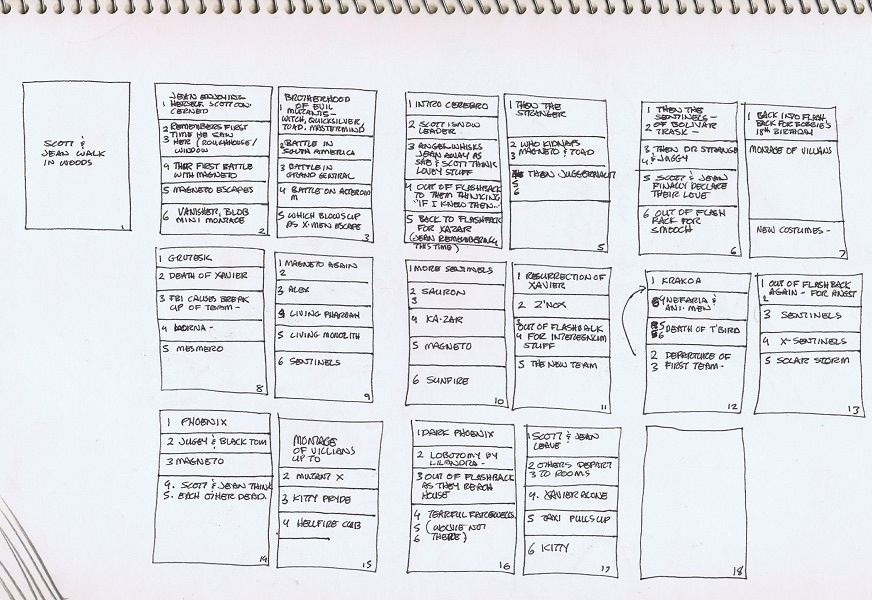 SCOTT
&
JEAN WALK
IN WOODS
1
JEAN ENJOYING
1 HERSELF. SCOTT CON-
CERNED
2 REMEMBERS FIRST
TIME HE SAW
3 HER (ROUGHHOUSE/
WINDOW
4 THEIR FIRST BATTLE
WITH MAGNETO
5 MAGNETO ESCAPES
6 VANISHER, BLOB
MINI MONTAGE
2
BROTHERHOOD
1 OF EVIL
MUTANTS-
WITCH, QUICKSILVER,
TOAD, MASTERMIND
2 BATTLE IN
SOUTH AMERICA
3 BATTLE IN
GRAND CENTRAL
4 BATTLE ON ASTEROID
M
5 WHICH BLOWS UP
AS X-MEN ESCAPE
3
1 INTRO CEREBRO
2 SCOTT IS NOW
LEADER
3 ANGEL WHISKS
JEAN AWAY AS
SHE & SCOTT THINK
LOVEY STUFF
4 OUT OF FLASHBACK
TO THEM THINKING
"IF I KNEW THEN..."
5 BACK TO FLASHBACK
FOR KAZAR
(JEAN REMEMBERING
THIS TIME)
1 THEN THE
STRANGER
2 WHO KIDNAPS
3 MAGNETO & TOAD
4 THEN JUGGERNAUT
5
6
5
1 THEN THE
SENTINELS-
2 OF BOLIVAR
TRASK-
3 THEN DR STRANGE
4 & JUGGY
5 SCOTT & JEAN
FINALLY DECLARE
THEIR LOVE
6 OUT OF FLASH
BACK FOR
SMOOCH
6
1 BACK INTO FLASH
BACK FOR BOBBIE'S
18th BIRTHDAY
MONTAGE OF VILLANS
NEW COSTUMES-
7
1 GROTESK
2 DEATH OF XAVIER
3 FBI CAUSES BREAK
UP OF TEAM-
4 LORNA-
5 MESMERO
8
1 MAGNETO AGAIN
2
3 ALEX
4 LIVING PHAROAH
5 LIVING MONOLITH
6 SENTINELS
9
1 MORE SENTINELS
2 SAURON
3
4 KA-ZAR
5 MAGNETO
6 SUNFIRE
10
1 RESURRECTION OF
XAVIER
2 Z'NOX
3 OUT OF FLASHBACK
4 FOR INTERREGNUM
STUFF
5 THE NEW TEAM
11
1 KRAKOA
4 NEFARIA &
ANI-MEN
5 DEATH OF T'BIRD
6
2 DEPARTURE OF
3 FIRST TEAM-
12
1 OUT OF FLASHBACK
AGAIN - FOR ANGST
2
3 SENTINELS
4 X-SENTINELS
5 SOLAR STORM
13
1 PHOENIX
2 JUGGY & BLACK TOM
3 MAGNETO
4. SCOTT & JEAN THINK
5. EACH OTHER DEAD.
14
MONTAGE
OF VILLIANS
UP TO
2 MUTANT X
3 KITTY PRYDE
4 HELLFIRE CLUB
15
1 DARK PHOENIX
2 LOBOTOMY BY
LILANDRA-
3 OUT OF FLASHBACK
AS THEY REACH
HOUSE
4 TEARFUL FAREWELLS
5 (WOLVIE NOT
6 THERE)
16
1 SCOTT & JEAN
LEAVE
2 OTHERS DEPART
3 TO ROOMS
4. XAVIER ALONE
5 TAXI PULLS UP
6 KITTY
17
18